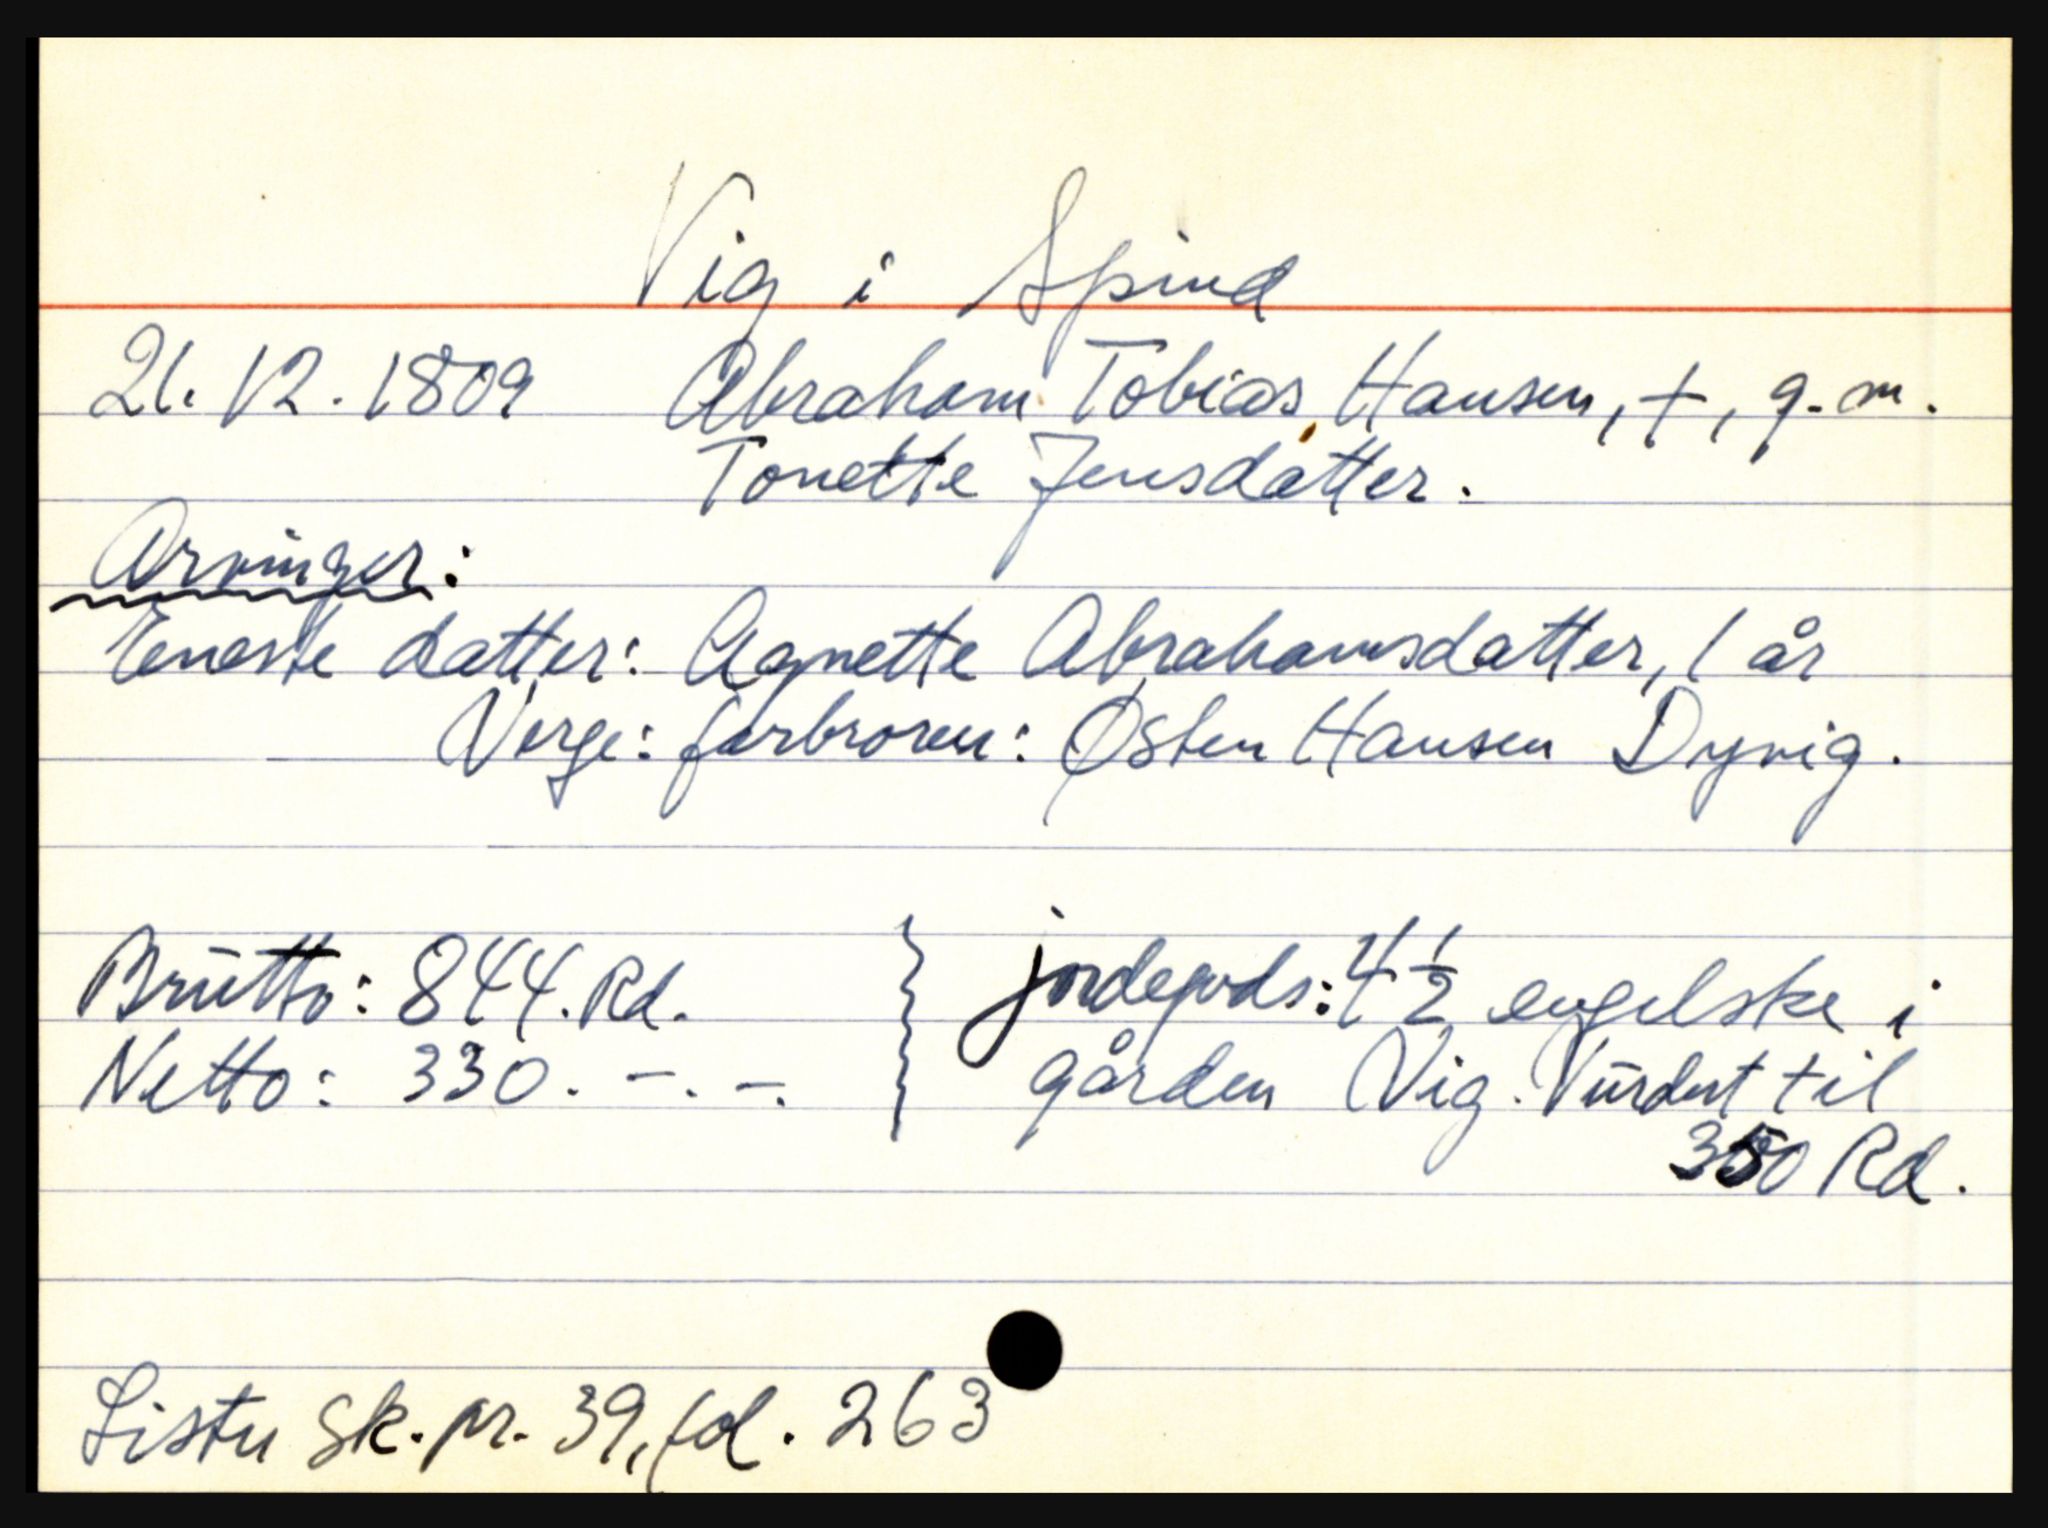 Vig i Spind
21.12.1809 Abraham Tobias Hansen, †, g.m.
Tonette Jensdatter.
Arvinger:
Eneste datter: Agnette Abrahamsdatter, 1 år
Verge: farbroren: Østen Hansen Dyvig.
Brutto: 844. Rd.
Netto: 330. -. -.
jordegods: 4 1/2 engelske i
gården Vig. Vurdert til
350 Rd.
Lister sk. pr. 39, fol. 263